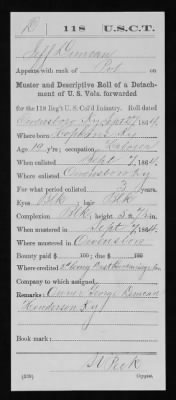 D | 118 | U.S.C.T.
Jeff Duncan
Appears with rank of Pvt on
Muster and Descriptive Roll of a Detach-
ment of U. S. Vols. forwarded
for the 118 Reg't U. S. Col'd Infantry. Roll dated
Owensboro Ky Sept 7, 1864.
Where born Hopkins Ky
Age 19 y'rs; occupation Laborer
When enlisted Sept 7, 1864.
Where enlisted Owensboro Ky
For what period enlisted 3 years.
Eyes Blk; hair Blk
Complexion Blk; height 5 ft. in.
When mustered in Sept 7, 1864.
Where mustered in Owensboro
Bounty paid $ 100; due $ 100
Where credited
Company to which assigned
Remarks: Owner George Duncan
Henderson Ky
Book mark:
(339) Copyist.